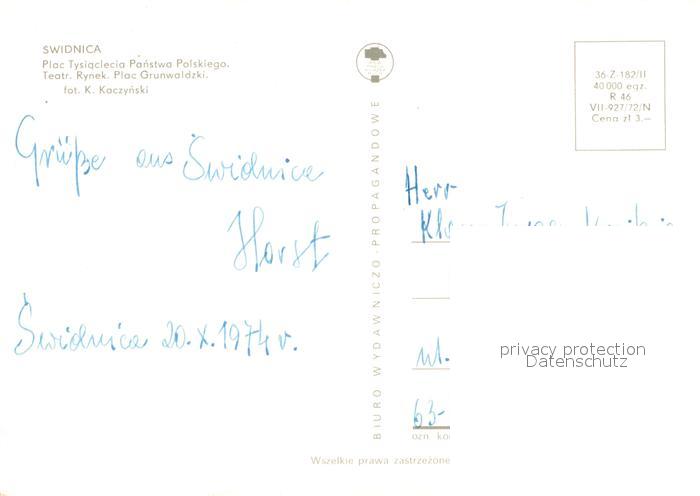 SWIDNICA
Plac Tysiąclecia Państwa Polskiego.
Teatr. Rynek. Plac Grunwaldzki.
fot. K. Kaczyński
Grüße aus Świdnica
Horst
Świdnica 20.X.1974 r.
BIURO WYDAWNICZO-PROPAGANDOWE
36-Z-182/II
40 000 egz.
R 46
VII-927/72/N
Cena zł 3.—
Herr
ul.
63-
privacy protection
Datenschutz
Wszelkie prawa zastrzeżone